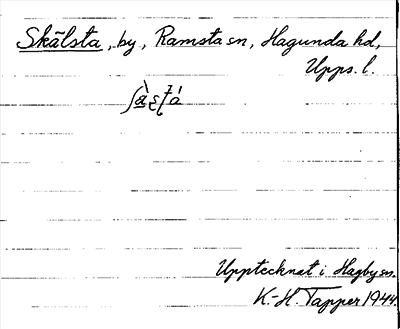 Skälsta, by, Ramsta sn, Hagunda hd,
Upps. l.
Upptecknat i Hagby sn.
K.-H. Tapper 1944.